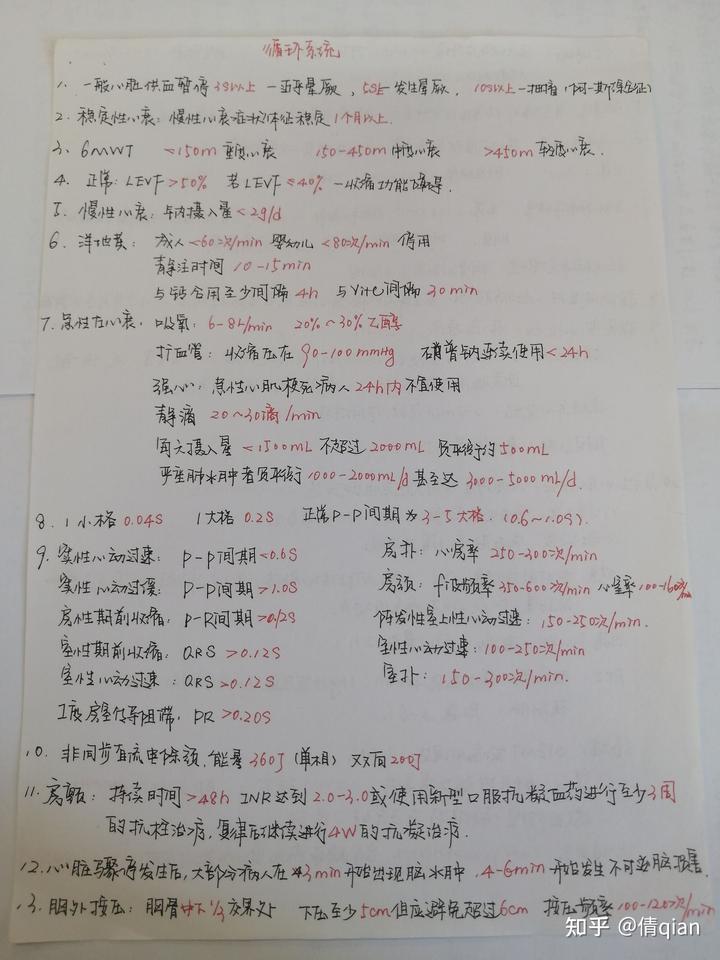 循环系统
1. 一般心脏供血暂停3s以上一近乎晕厥，5s以上一发生晕厥，10s以上一抽搐（阿-斯综合征）
2. 稳定性心衰：慢性心衰症状体征稳定1个月以上.
3. 6MWT <150m 重度心衰 150-450m 中度心衰 >450m 轻度心衰.
4. 正常：LEVF>50% 若LEVF≤40% 一收缩功能障碍.
5. 慢性心衰：钠摄入量<2g/d
6. 洋地黄：成人<60次/min 婴幼儿<80次/min 停用
静注时间 10-15min
与钙合用至少间隔 4h 与Vitc间隔 30min
7. 急性左心衰：吸氧：6-8L/min 20%~30%乙醇
扩血管：收缩压在 90-100mmHg 硝普钠连续使用<24h
强心：急性心肌梗死病人24h内不宜使用
静滴 20~30滴/min
每天摄入量 <1500mL 不超过2000mL 负平衡约500mL
严重肺水肿者负平衡1000-2000mL/d 甚至达 3000-5000mL/d.
8. 1小格 0.04S 1大格 0.2S 正常P-P间期为3-5大格.（0.6~1.0s）.
9. 窦性心动过速：P-P间期<0.6S 房扑：心房率 250-300次/min
窦性心动过缓：P-P间期>1.0S 房颤：f波频率350-600次/min 心室率100-160次/min
房性期前收缩：P-R间期>0.12S 阵发性室上性心动过速：150-250次/min.
室性期前收缩：QRS >0.12S 室性心动过速：100-250次/min
室性心动过速：QRS>0.12S 室扑：150-300次/min.
I度房室传导阻滞：PR>0.20S
10. 非同步直流电除颤，能量360J（单相）双双向200J
11. 房颤：持续时间>48h INR达到2.0-3.0或使用新型口服抗凝血药进行至少3周
的抗栓治疗，复律后继续进行4W的抗凝治疗.
12. 心脏骤停发生后，大部分病人在3min开始出现脑水肿，4-6min开始发生不可逆脑损害.
13. 胸外按压：胸骨中下1/3交界处 下压至少5cm但应避免超过6cm 按压频率100-120次/min
知乎 @倩qian